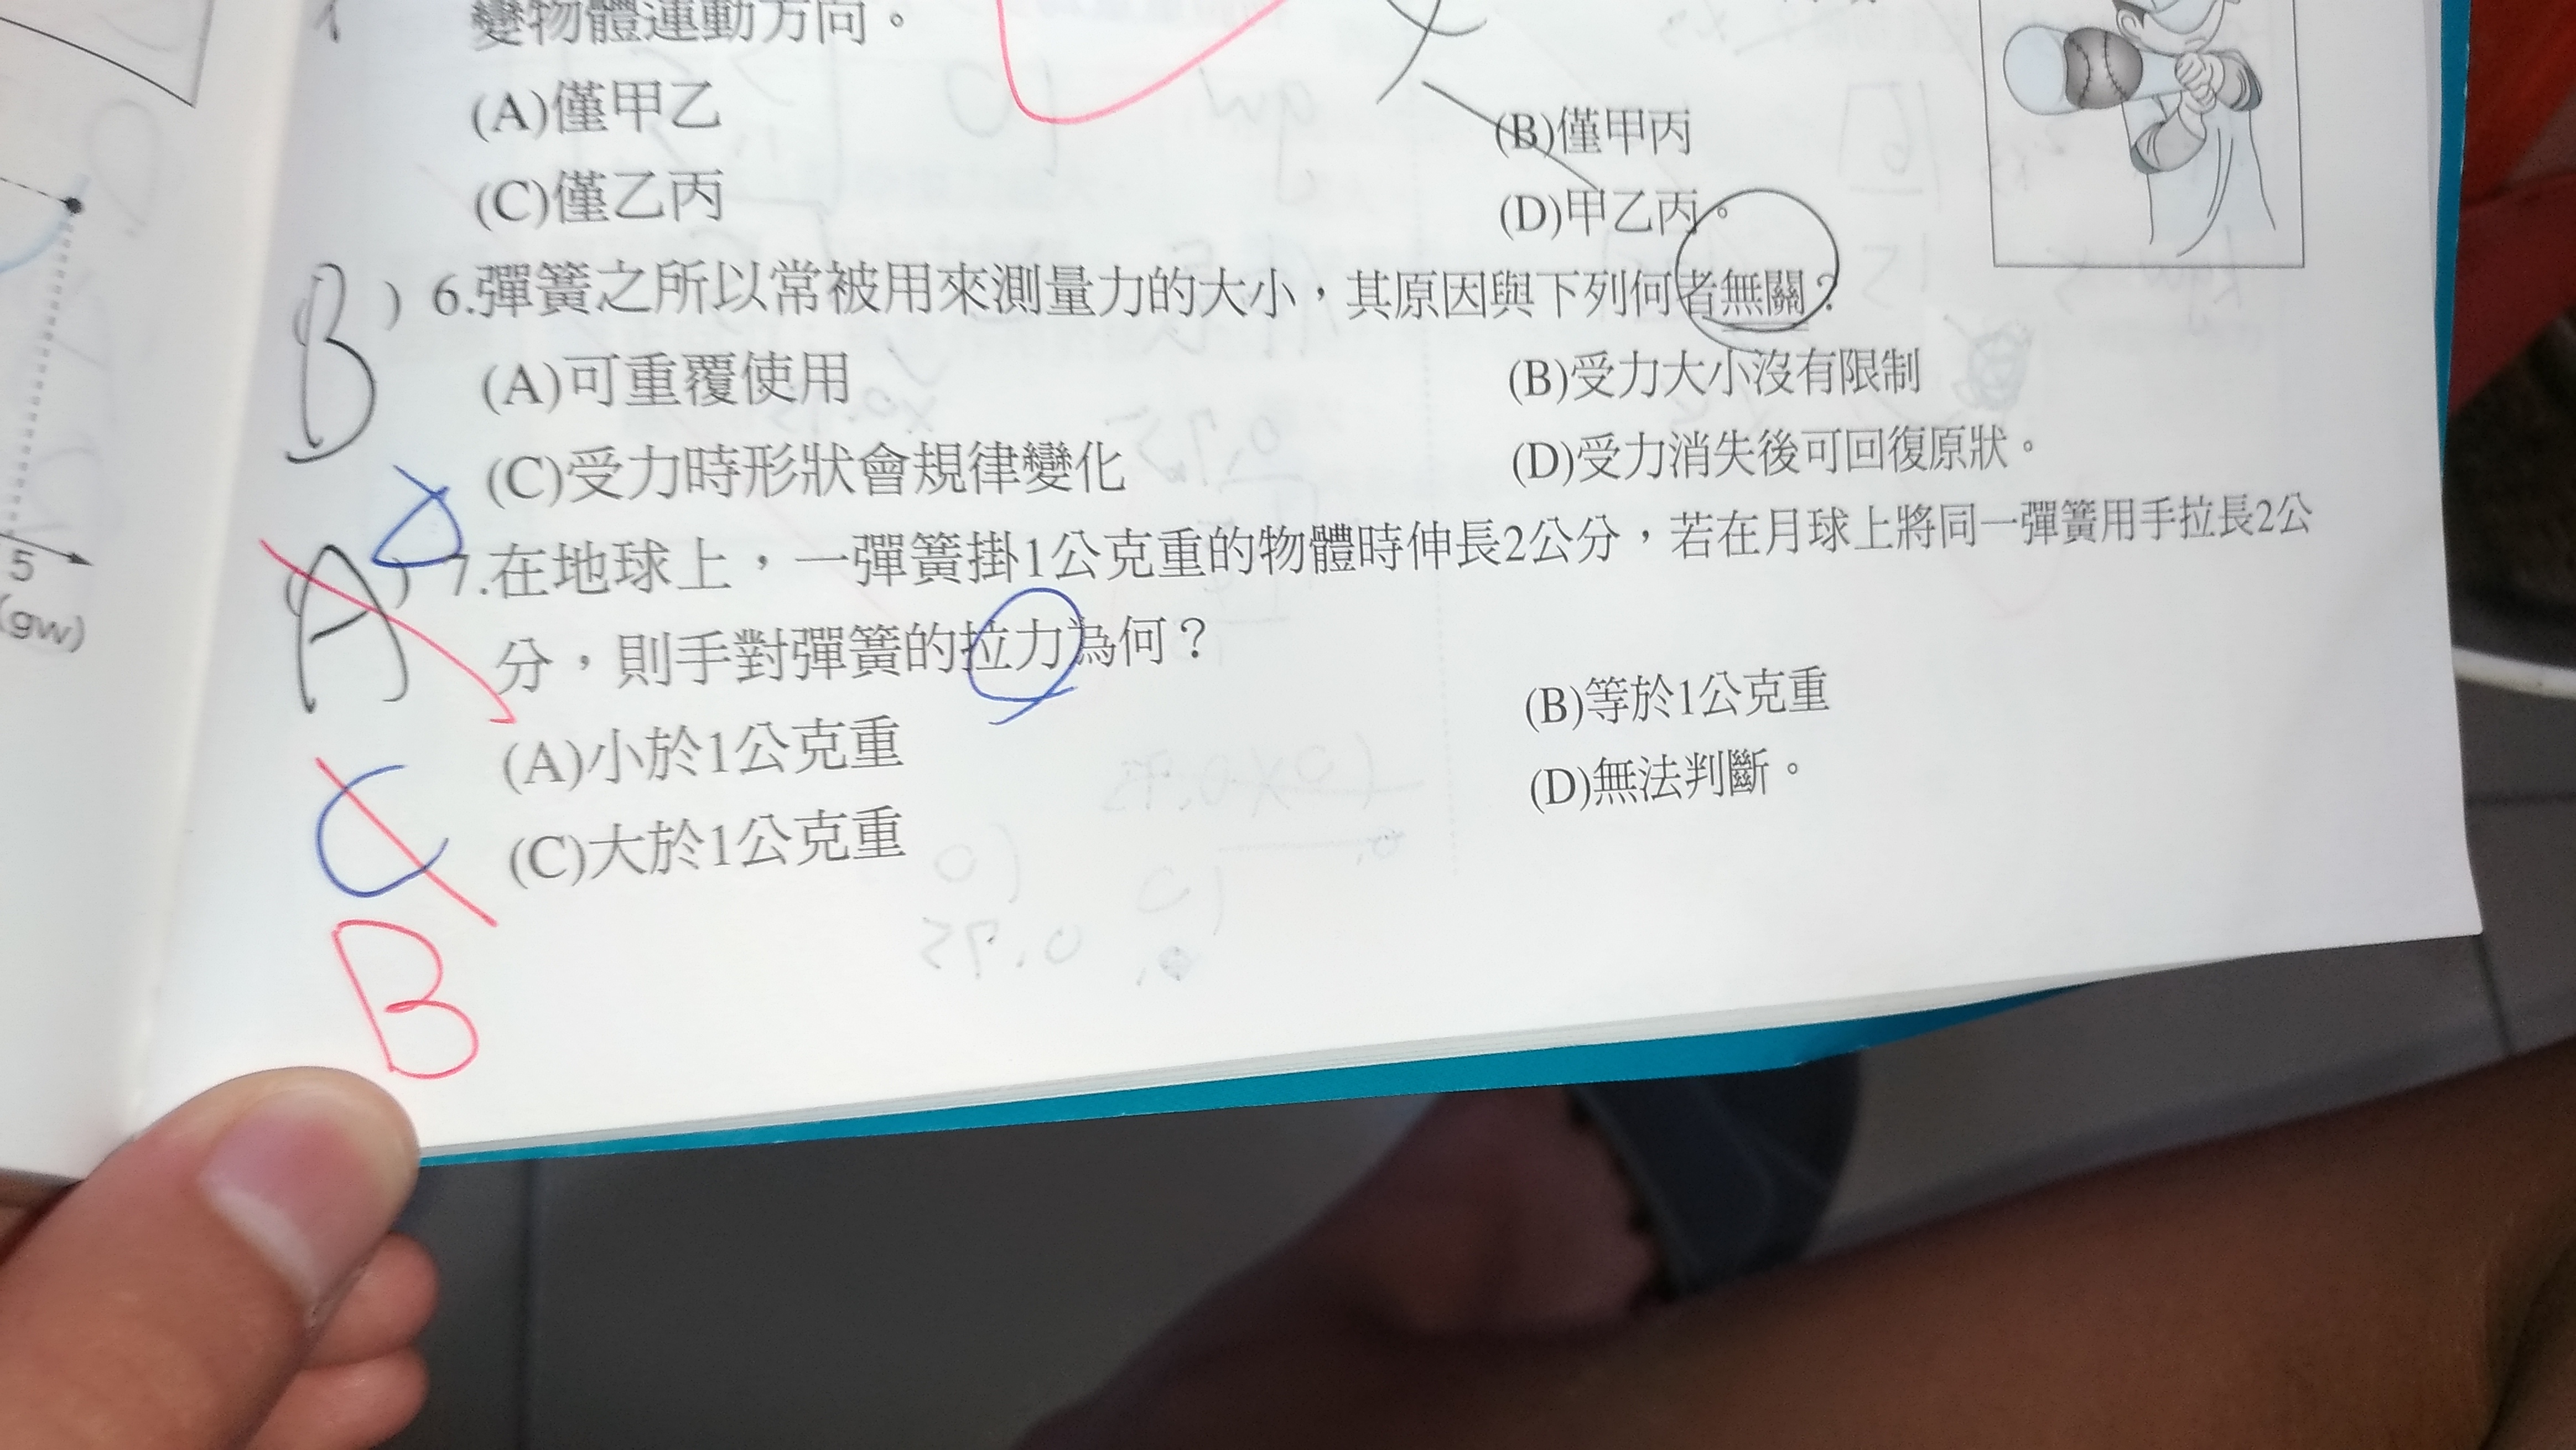 變物體運動方向。
(A)僅甲乙
(B)僅甲丙
(C)僅乙丙
(D)甲乙丙。
B ) 6.彈簧之所以常被用來測量力的大小，其原因與下列何者無關？
(A)可重覆使用
(B)受力大小沒有限制
(C)受力時形狀會規律變化
(D)受力消失後可回復原狀。
(A) 7.在地球上，一彈簧掛1公克重的物體時伸長2公分，若在月球上將同一彈簧用手拉長2公
分，則手對彈簧的拉力為何？
(A)小於1公克重
(B)等於1公克重
(C)大於1公克重
(D)無法判斷。
C
B
5
(gw)